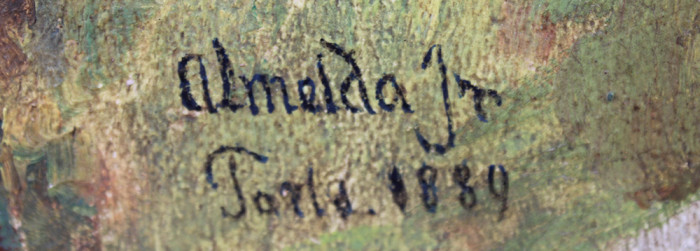 Almeida Jr
Paris. 1889